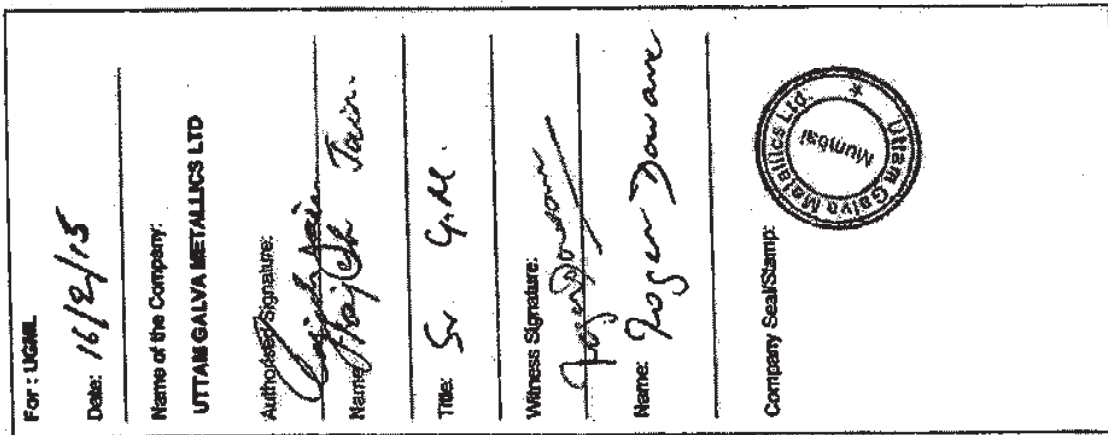 For : UGML
Date: 16/2/15
Name of the Company:
UTTAM GALVA METALLICS LTD
Authorised Signature:
Name: Jain.
Title: Sr G.M.
Witness Signature:
Name:
Company Seal/Stamp:
Uttam Galva Metallics Ltd. *
Mumbai